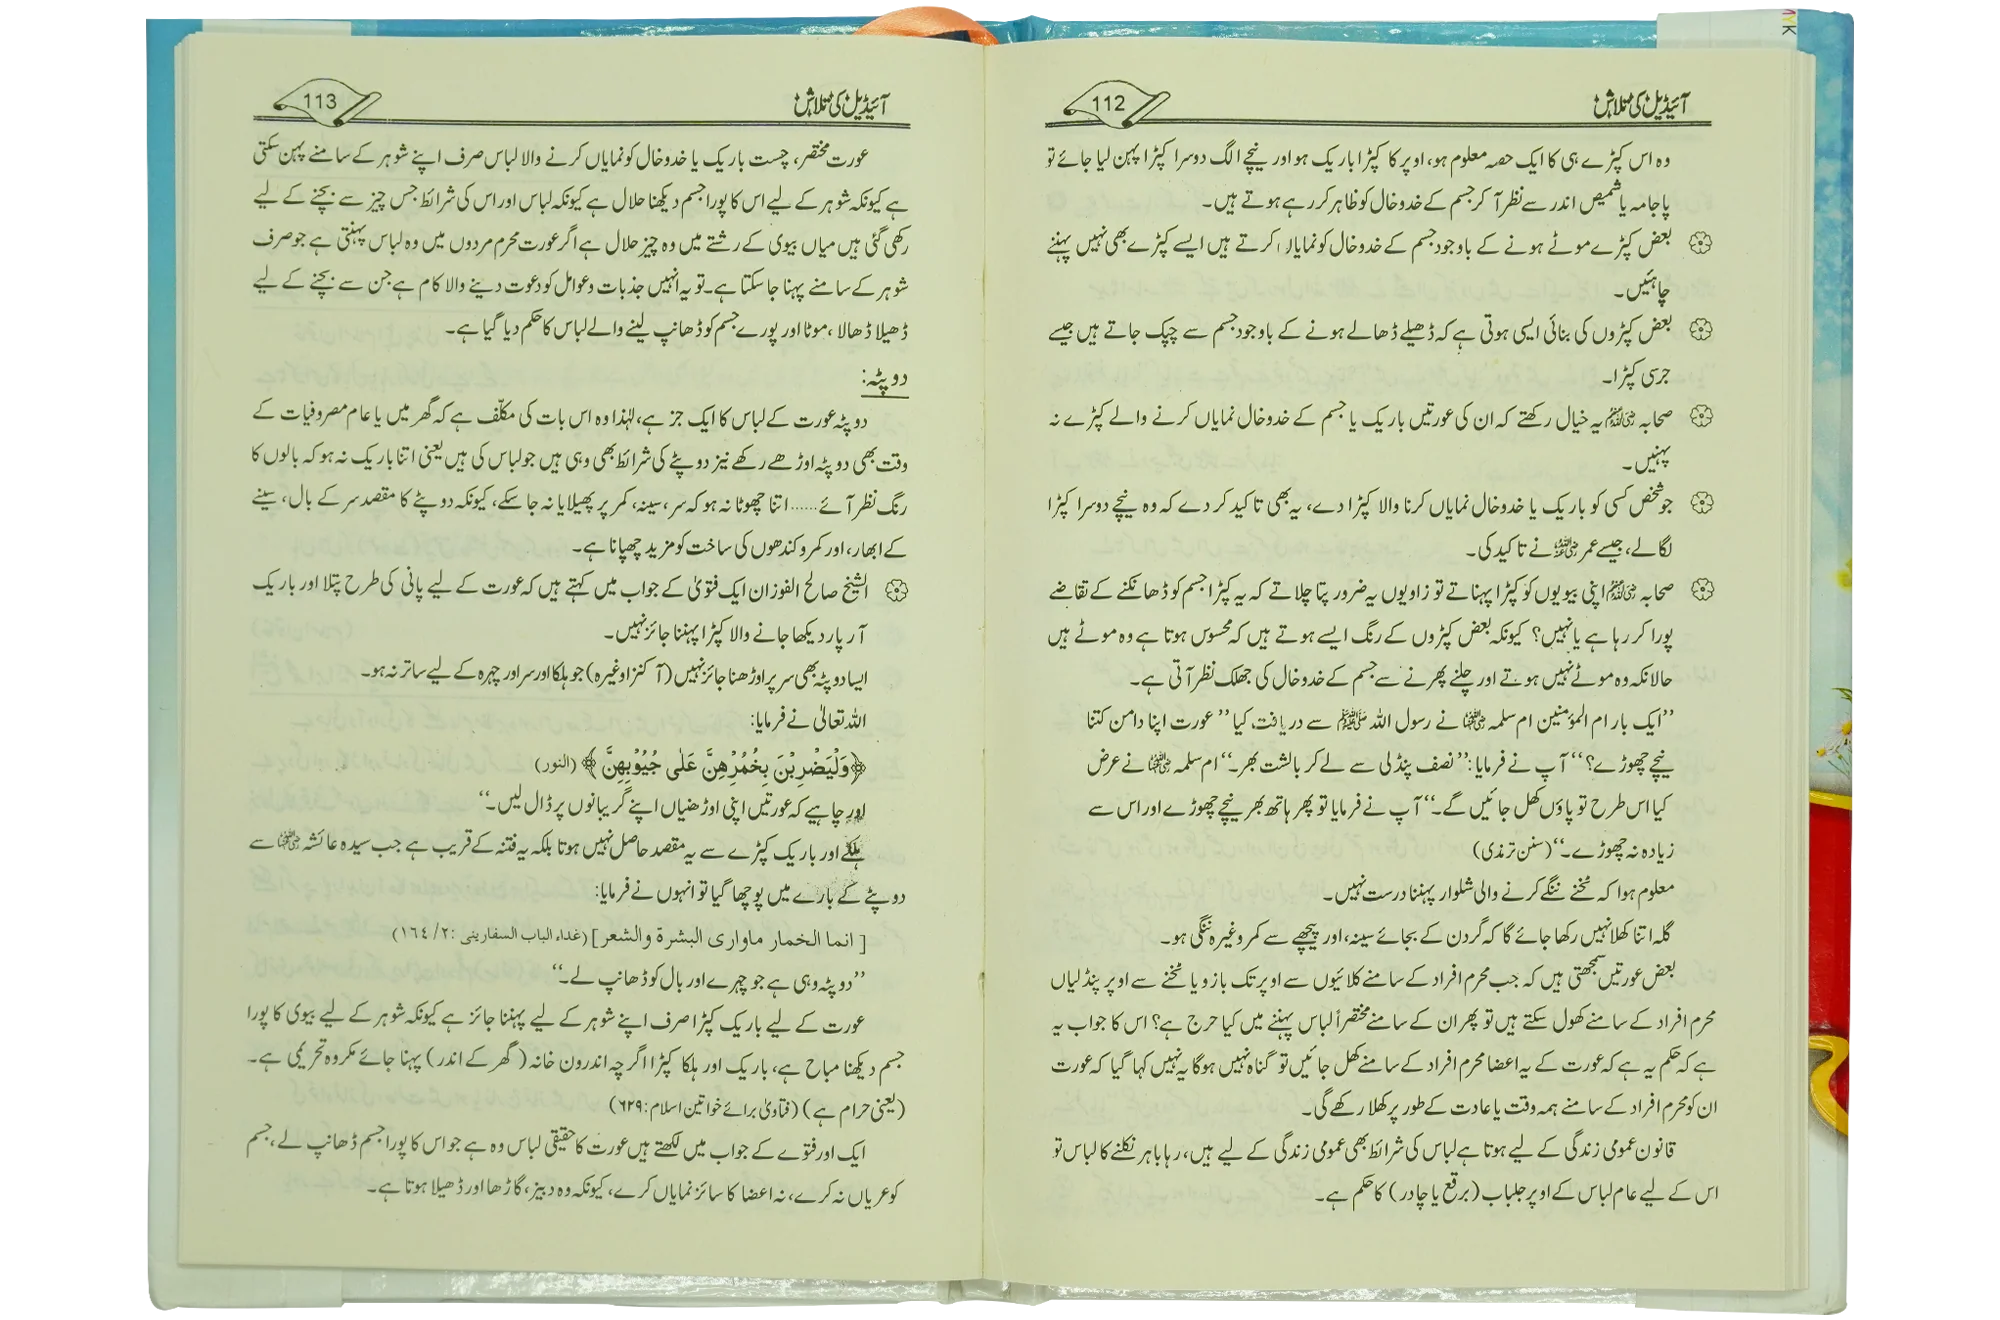 آئیڈیل کی تلاش
112
وہ اس کپڑے ہی کا ایک حصہ معلوم ہو، اوپر کا کپڑا باریک ہو اور نیچے الگ دوسرا کپڑا پہن لیا جائے تو
پاجامہ یا شمیص اندر سے نظر آ کر جسم کے خدوخال کو ظاہر کر رہے ہوتے ہیں۔
بعض کپڑے موٹے ہونے کے باوجود جسم کے خدوخال کو نمایاں کرتے ہیں ایسے کپڑے بھی نہیں پہننے
چاہئیں۔
بعض کپڑوں کی بنائی ایسی ہوتی ہے کہ ڈھیلے ڈھالے ہونے کے باوجود جسم سے چپک جاتے ہیں جیسے
جرسی کپڑا۔
صحابہ رضی اللہ عنہم یہ خیال رکھتے کہ ان کی عورتیں باریک یا جسم کے خدوخال نمایاں کرنے والے کپڑے نہ
پہنیں۔
جو شخص کسی کو باریک یا خدوخال نمایاں کرنا والا کپڑا دے، یہ بھی تاکید کر دے کہ وہ نیچے دوسرا کپڑا
لگا لے، جیسے عمر رضی اللہ عنہ نے تاکید کی۔
صحابہ رضی اللہ عنہم اپنی بیویوں کو کپڑا پہناتے تو زاویوں یہ ضرور پتا چلاتے کہ یہ کپڑا جسم کو ڈھانکنے کے تقاضے
پورا کر رہا ہے یا نہیں؟ کیونکہ بعض کپڑوں کے رنگ ایسے ہوتے ہیں کہ محسوس ہوتا ہے وہ موٹے ہیں
حالانکہ وہ موٹے نہیں ہوتے اور چلنے پھرنے سے جسم کے خدوخال کی جھلک نظر آتی ہے۔
’’ایک بار ام المؤمنین ام سلمہ رضی اللہ عنہا نے رسول اللہ ﷺ سے دریافت کیا’’ عورت اپنا دامن کتنا
نیچے چھوڑے؟‘‘ آپ نے فرمایا:’’نصف پنڈلی سے لے کر بالشت بھر۔‘‘ ام سلمہ رضی اللہ عنہا نے عرض
کیا اس طرح تو پاؤں کھل جائیں گے۔‘‘ آپ نے فرمایا تو پھر ہاتھ بھر نیچے چھوڑے اور اس سے
زیادہ نہ چھوڑے۔‘‘ (سنن ترمذی)
معلوم ہوا کہ ٹخنے ننگے کرنے والی شلوار پہننا درست نہیں۔
گلہ اتنا کھلا نہیں رکھا جائے گا کہ گردن کے بجائے سینہ، اور پیچھے سے کمر وغیرہ ننگی ہو۔
بعض عورتیں سمجھتی ہیں کہ جب محرم افراد کے سامنے کلائیوں سے اوپر تک بازو یا ٹخنے سے اوپر پنڈلیاں
محرم افراد کے سامنے کھول سکتے ہیں تو پھر ان کے سامنے مختصراً لباس پہننے میں کیا حرج ہے؟ اس کا جواب یہ
ہے کہ حکم یہ ہے کہ عورت کے یہ اعضا محرم افراد کے سامنے کھل جائیں تو گناہ نہیں ہوگا یہ نہیں کہا گیا کہ عورت
ان کو محرم افراد کے سامنے ہمہ وقت یا عادت کے طور پر کھلا رکھے گی۔
قانون عمومی زندگی کے لیے ہوتا ہے لباس کی شرائط بھی عمومی زندگی کے لیے ہیں، رہا باہر نکلنے کا لباس تو
اس کے لیے عام لباس کے اوپر جلباب (برقع یا چادر) کا حکم ہے۔
آئیڈیل کی تلاش
113
عورت مختصر، چست باریک یا خدوخال کو نمایاں کرنے والا لباس صرف اپنے شوہر کے سامنے پہن سکتی
ہے کیونکہ شوہر کے لیے اس کا پورا جسم دیکھنا حلال ہے کیونکہ لباس اور اس کی شرائط جس چیز سے بچنے کے لیے
رکھی گئی ہیں میاں بیوی کے رشتے میں وہ چیز حلال ہے اگر عورت محرم مردوں میں وہ لباس پہنتی ہے جو صرف
شوہر کے سامنے پہنا جا سکتا ہے۔ تو یہ انہیں جذبات و عوامل کو دعوت دینے والا کام ہے جن سے بچنے کے لیے
ڈھیلا ڈھالا، موٹا اور پورے جسم کو ڈھانپ لینے والے لباس کا حکم دیا گیا ہے۔
دوپٹہ:
دوپٹہ عورت کے لباس کا ایک جز ہے، لہٰذا وہ اس بات کی مکلّف ہے کہ گھر میں یا عام مصروفیات کے
وقت بھی دوپٹہ اوڑھے رکھے نیز دوپٹے کی شرائط بھی وہی ہیں جو لباس کی ہیں یعنی اتنا باریک نہ ہو کہ بالوں کا
رنگ نظر آئے...... اتنا چھوٹا نہ ہو کہ سر، سینہ، کمر پر پھیلایا نہ جا سکے، کیونکہ دوپٹے کا مقصد سر کے بال، سینے
کے ابھار، اور کمر و کندھوں کی ساخت کو مزید چھپانا ہے۔
الشیخ صالح الفوزان ایک فتویٰ کے جواب میں کہتے ہیں کہ عورت کے لیے پانی کی طرح پتلا اور باریک
آر پار دیکھا جانے والا کپڑا پہننا جائز نہیں۔
ایسا دوپٹہ بھی سر پر اوڑھنا جائز نہیں (آ کنزا وغیرہ) جو ہلکا اور سر اور چہرہ کے لیے ساتر نہ ہو۔
اللہ تعالیٰ نے فرمایا:
﴿وَلْيَضْرِبْنَ بِخُمُرِهِنَّ عَلٰى جُيُوْبِهِنَّ﴾ (النور)
اور چاہیے کہ عورتیں اپنی اوڑھنیاں اپنے گریبانوں پر ڈال لیں۔‘‘
ہلکے اور باریک کپڑے سے یہ مقصد حاصل نہیں ہوتا بلکہ یہ فتنہ کے قریب ہے جب سیدہ عائشہ رضی اللہ عنہا سے
دوپٹے کے بارے میں پوچھا گیا تو انہوں نے فرمایا:
[ انما الخمار ماواری البشرة والشعر] (غداء الباب السفارینی :۲/۱٦٤)
’’دوپٹہ وہی ہے جو چہرے اور بال کو ڈھانپ لے۔‘‘
عورت کے لیے باریک کپڑا صرف اپنے شوہر کے لیے پہننا جائز ہے کیونکہ شوہر کے لیے بیوی کا پورا
جسم دیکھنا مباح ہے، باریک اور ہلکا کپڑا اگرچہ اندرون خانہ (گھر کے اندر) پہنا جائے مکروہ تحریمی ہے۔
(یعنی حرام ہے) (فتاویٰ برائے خواتین اسلام:۶۲۹)
ایک اور فتوے کے جواب میں لکھتے ہیں عورت کا حقیقی لباس وہ ہے جو اس کا پورا جسم ڈھانپ لے، جسم
کو عریاں نہ کرے، نہ اعضا کا سائز نمایاں کرے، کیونکہ وہ دبیز، گاڑھا اور ڈھیلا ہوتا ہے۔